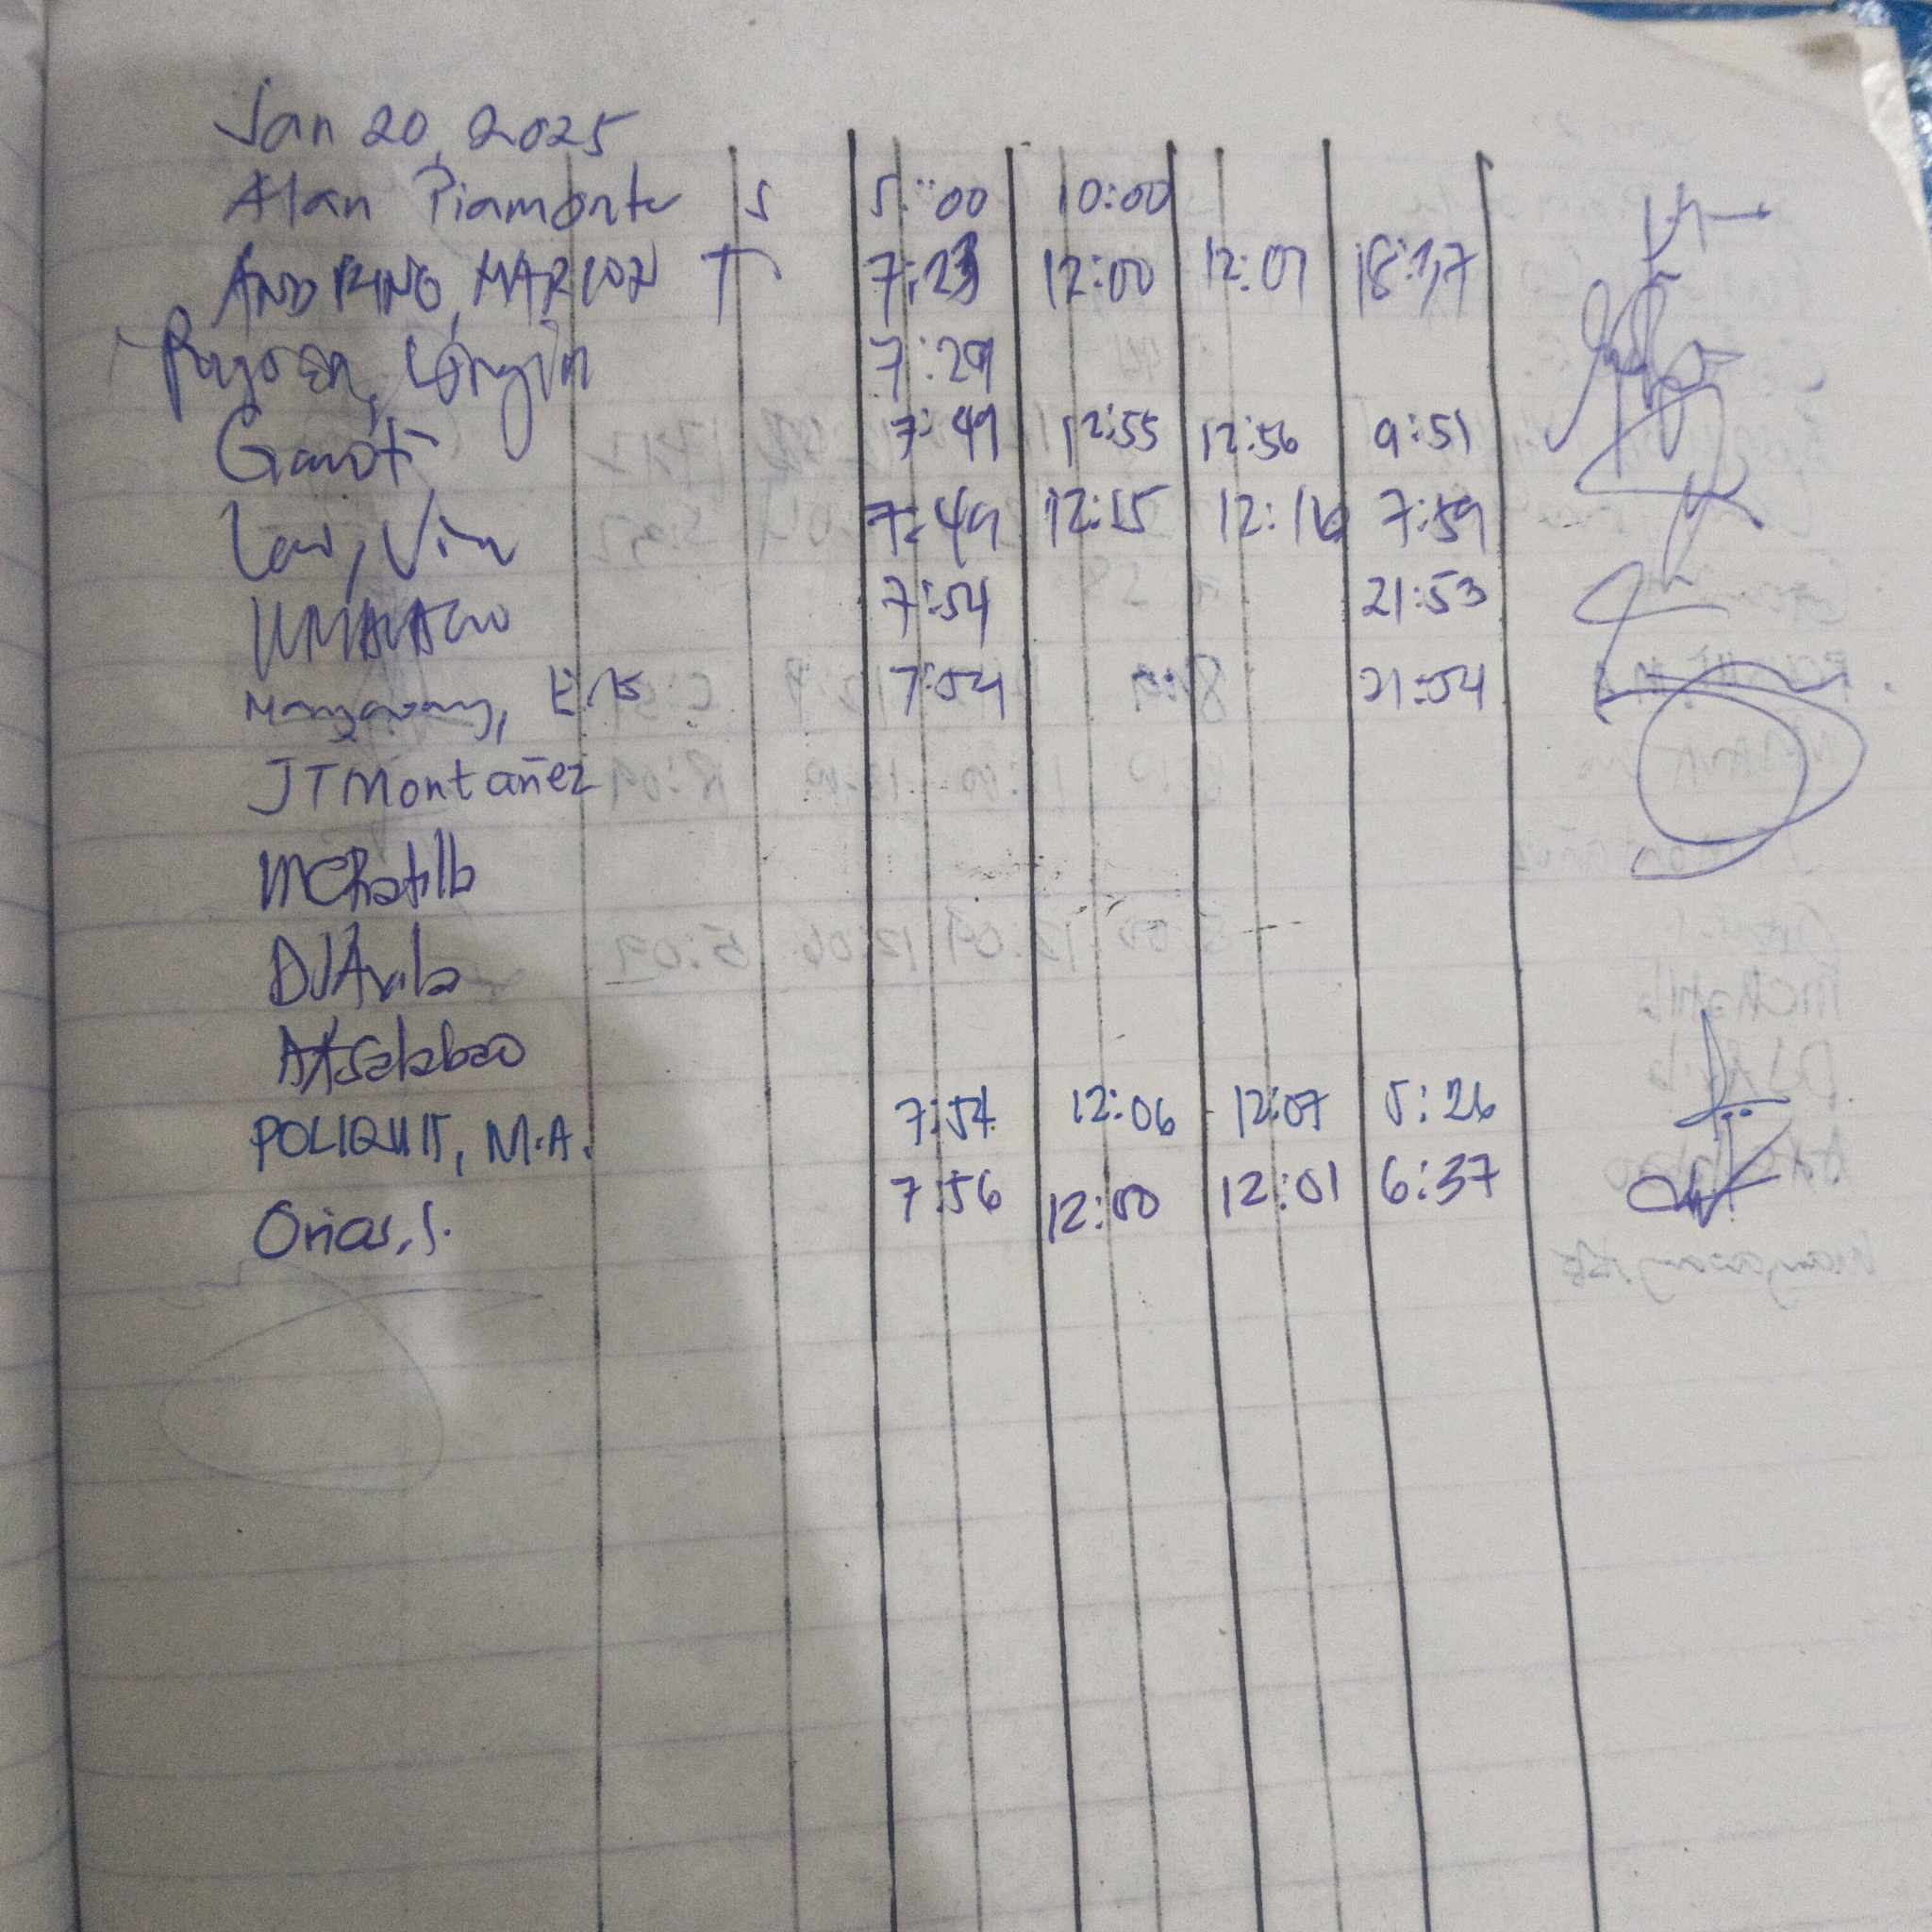 Jan 20, 2025
Alan Piamonte S 5:00 10:00
ANDRINO, MARLON T 7:23 12:00 12:01 18:17
7:29
7:49 12:55 12:56 9:51
7:49 12:15 12:16 7:59
7:54 21:53
7:54 21:54
JTMontañez
MCRatilla
DJAvila
Salabao
POLIQUIT, M.A. 7:54 12:06 12:07 5:26
Orias, S. 7:56 12:00 12:01 6:37